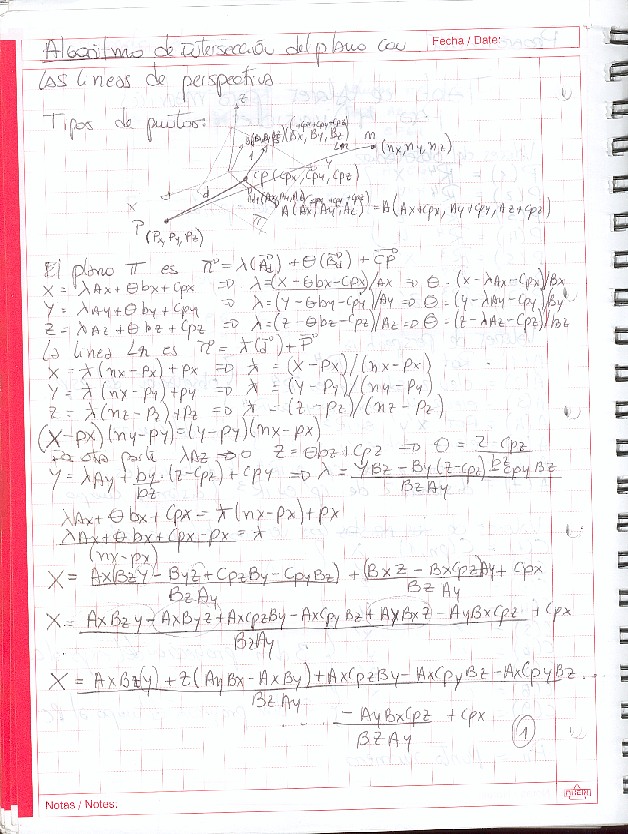 Algoritmo de intersección del plano con
Fecha / Date:
las lineas de perspectiva
Tipos de puntos:
Z
(Bx, By, Bz)
m
(nx, ny, nz)
cp (cpx, cpy, cpz)
d
x
π
A (Ax, Ay, Az) = A (Ax+cpx, Ay+cpy, Az+cpz)
P
(Px, Py, Pz)
El plano π es
X = λAx + θbx + cpx => λ = (x - θbx - cpx)/Ax => θ = (x - λAx - cpx)/Bx
Y = λAy + θby + cpy => λ = (y - θby - cpy)/Ay => θ = (y - λAy - cpy)/By
Z = λAz + θbz + cpz => λ = (z - θbz - cpz)/Az => θ = (z - λAz - cpz)/Bz
La linea Ln es
X = λ(nx - px) + px => λ = (x - px)/(nx - px)
Y = λ(nx - py) + py => λ = (y - py)/(ny - py)
Z = λ(nz - pz) + pz => λ = (z - pz)/(nz - pz)
(X - px)(ny - py) = (y - py)(nx - px)
Por otra parte λAz => 0 Z = θbz + cpz => θ = Z - cpz / bz
Y = λAy + by/bz · (z - cpz) + cpy => λ = YBz - By(z - cpz) - cpyBz / BzAy
λAx + θbx + cpx = λ(nx - px) + px
λAx + θbx + cpx - px = λ
(nx - px)
X = Ax(BzY - Byz + CpzBy - CpyBz) / BzAy + (BxZ - BxCpz)Ay / BzAy + Cpx
X = AxBzy - AxByz + AxCpzBy - AxCpyBz + AyBxz - AyBxCpz / BzAy + Cpx
X = AxBz(y) + z(AyBx - AxBy) + AxCpzBy - AxCpyBz - AxCpyBz / BzAy ...
- AyBxCpz / BzAy + Cpx
1
Notas / Notes.